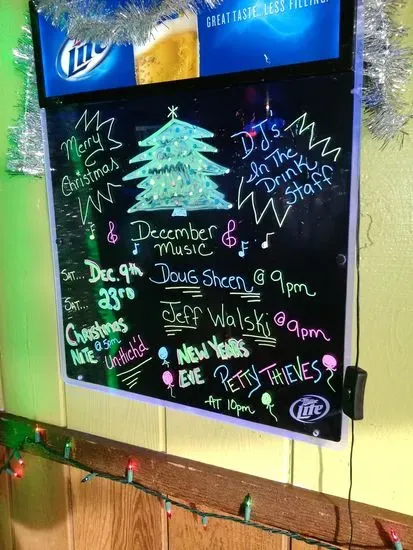 GREAT TASTE...LESS FILLING.
Lite
Merry
Christmas
DJ's
In The
Drink
Staff
December
Music
Sat... Dec. 9th Doug Sheen @ 9pm
Sat... 23rd Jeff Walski @ 9pm
Christmas
Nite @ 8pm Un-Hich'd
New Years
Eve Petty Thieves
At 10pm
Lite